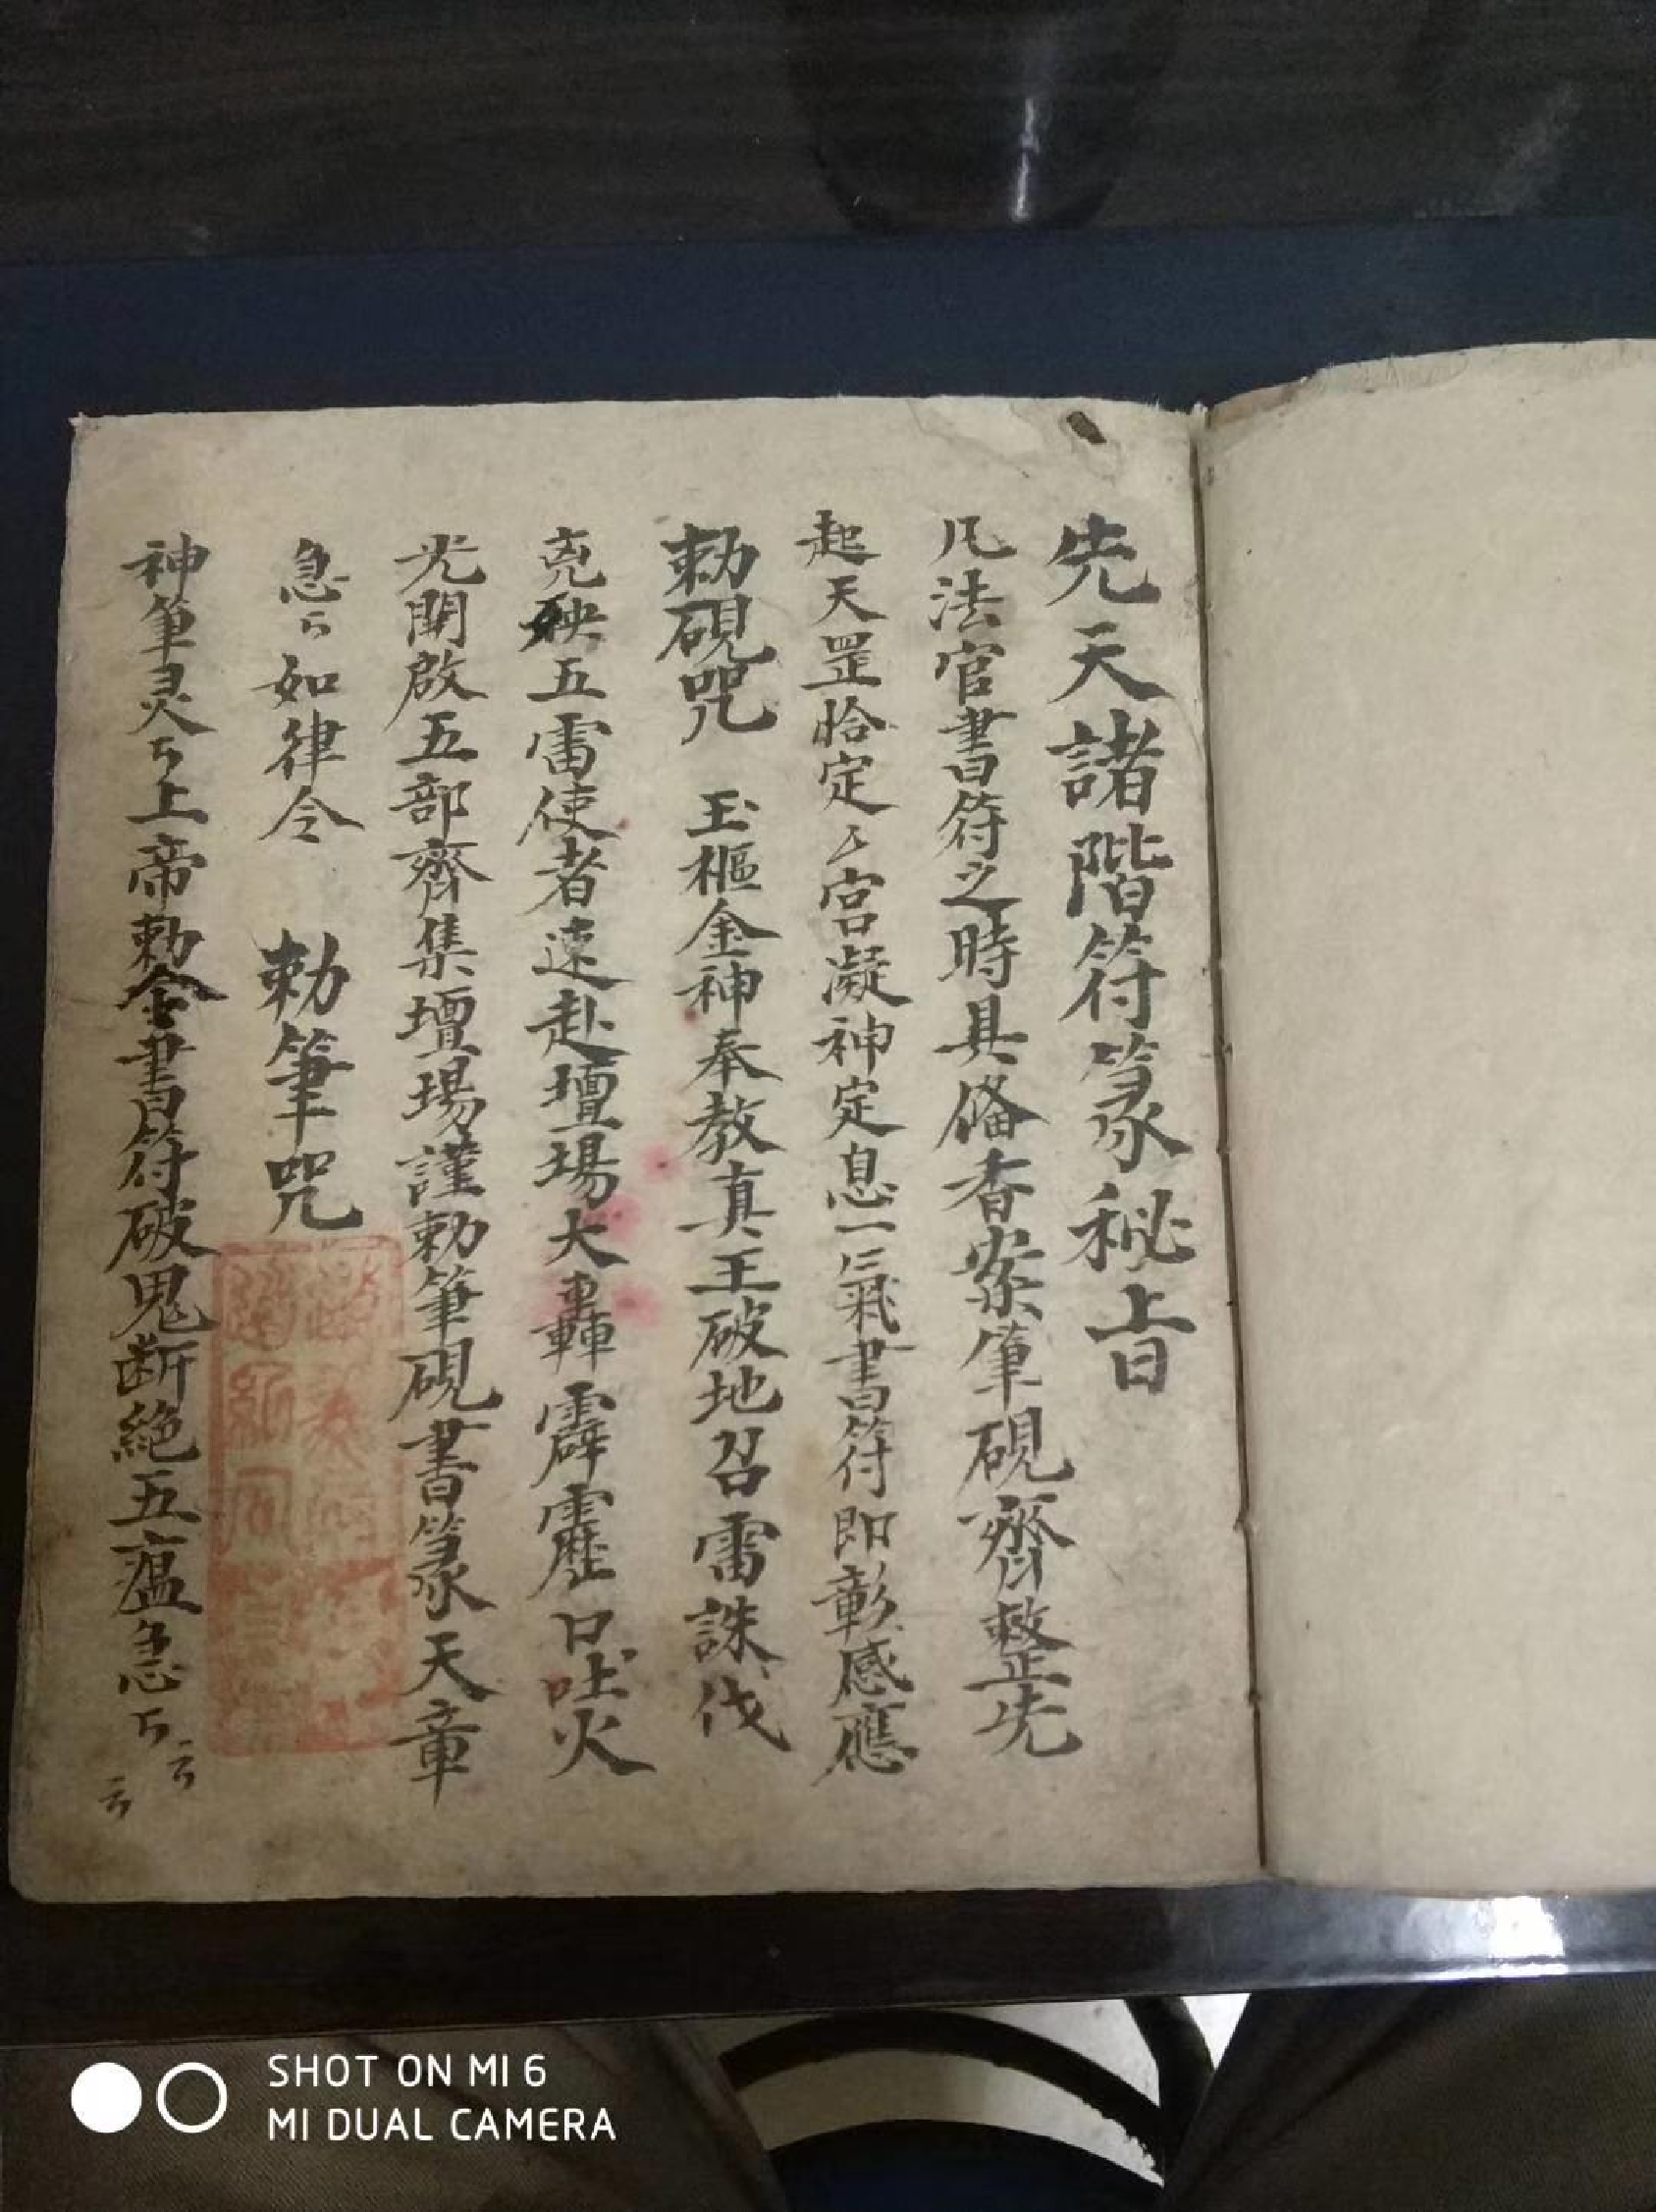 先天諸階符篆秘旨
凡法官書符之時具俻香案筆硯齊整先
起天罡恰定ㄣ宮凝神定息一氣書符即彰感應
勅硯咒　玉樞金神奉教真王破地召雷誅伐
兇殃五雷使者速赴壇場大轟霹靂口吐火
光開啟五部齊集壇場謹勅筆硯書篆天章
急々如律令　勅筆咒
神筆灵々上帝勅金書符破鬼断絶五瘟急々云云
SHOT ON MI 6
MI DUAL CAMERA